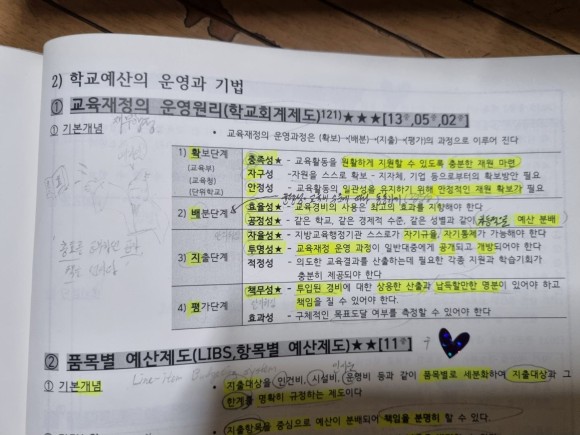 2) 학교예산의 운영과 기법
① 교육재정의 운영원리(학교회계제도)121)★★★[13※,05※,02※]
① 기본개념
• 교육재정의 운영과정은 (확보)→(배분)→(지출)→(평가)의 과정으로 이루어 진다
1) 확보단계
(교육부)
(교육청)
(단위학교)
충족성★ - 교육활동을 원활하게 지원할 수 있도록 충분한 재원 마련
자구성 -자원을 스스로 확보 - 지자체, 기업 등으로부터의 확보방안 필요
안정성 - 교육활동의 일관성을 유지하기 위해 안정적인 재원 확보가 필요
2) 배분단계
효율성★ - 교육경비의 사용은 최고의 효과를 지향해야 한다
공정성★ - 같은 학교, 같은 경제적 수준, 같은 성별과 같이 예산 분배
자율성★ - 지방교육행정기관 스스로가 자기규율, 자기통제가 가능해야 한다
3) 지출단계
투명성★ - 교육재정 운영 과정이 일반대중에게 공개되고 개방되어야 한다
적정성 - 의도한 교육결과를 산출하는데 필요한 각종 지원과 학습기회가
충분히 제공되어야 한다
4) 평가단계
책무성★ - 투입된 경비에 대한 상응한 산출과 납득할만한 명분이 있어야 하고
책임을 질 수 있어야 한다.
효과성 - 구체적인 목표도달 여부를 측정할 수 있어야 한다
② 품목별 예산제도(LIBS,항목별 예산제도)★★[11※]
Line-item Budgeting system
① 기본개념
• 지출대상을 인건비, 시설비, 운영비 등과 같이 품목별로 세분화하여 지출대상과 그
한계를 명확히 규정하는 제도이다
• 지출항목을 중심으로 예산이 분배되어 책임을 분명히 할 수 있다.